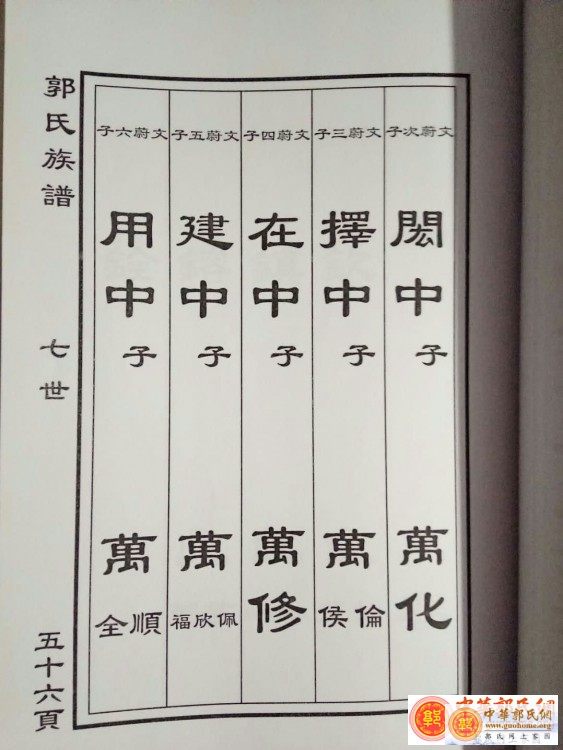 郭氏族譜
七世
五十六頁
文蔚次子
閎中子
萬化
文蔚三子
擇中子
萬倫侯
文蔚四子
在中子
萬修
文蔚五子
建中子
萬佩欣福
文蔚六子
用中子
萬順全
中華郭氏網
www.guohome.org
郭氏网上家园